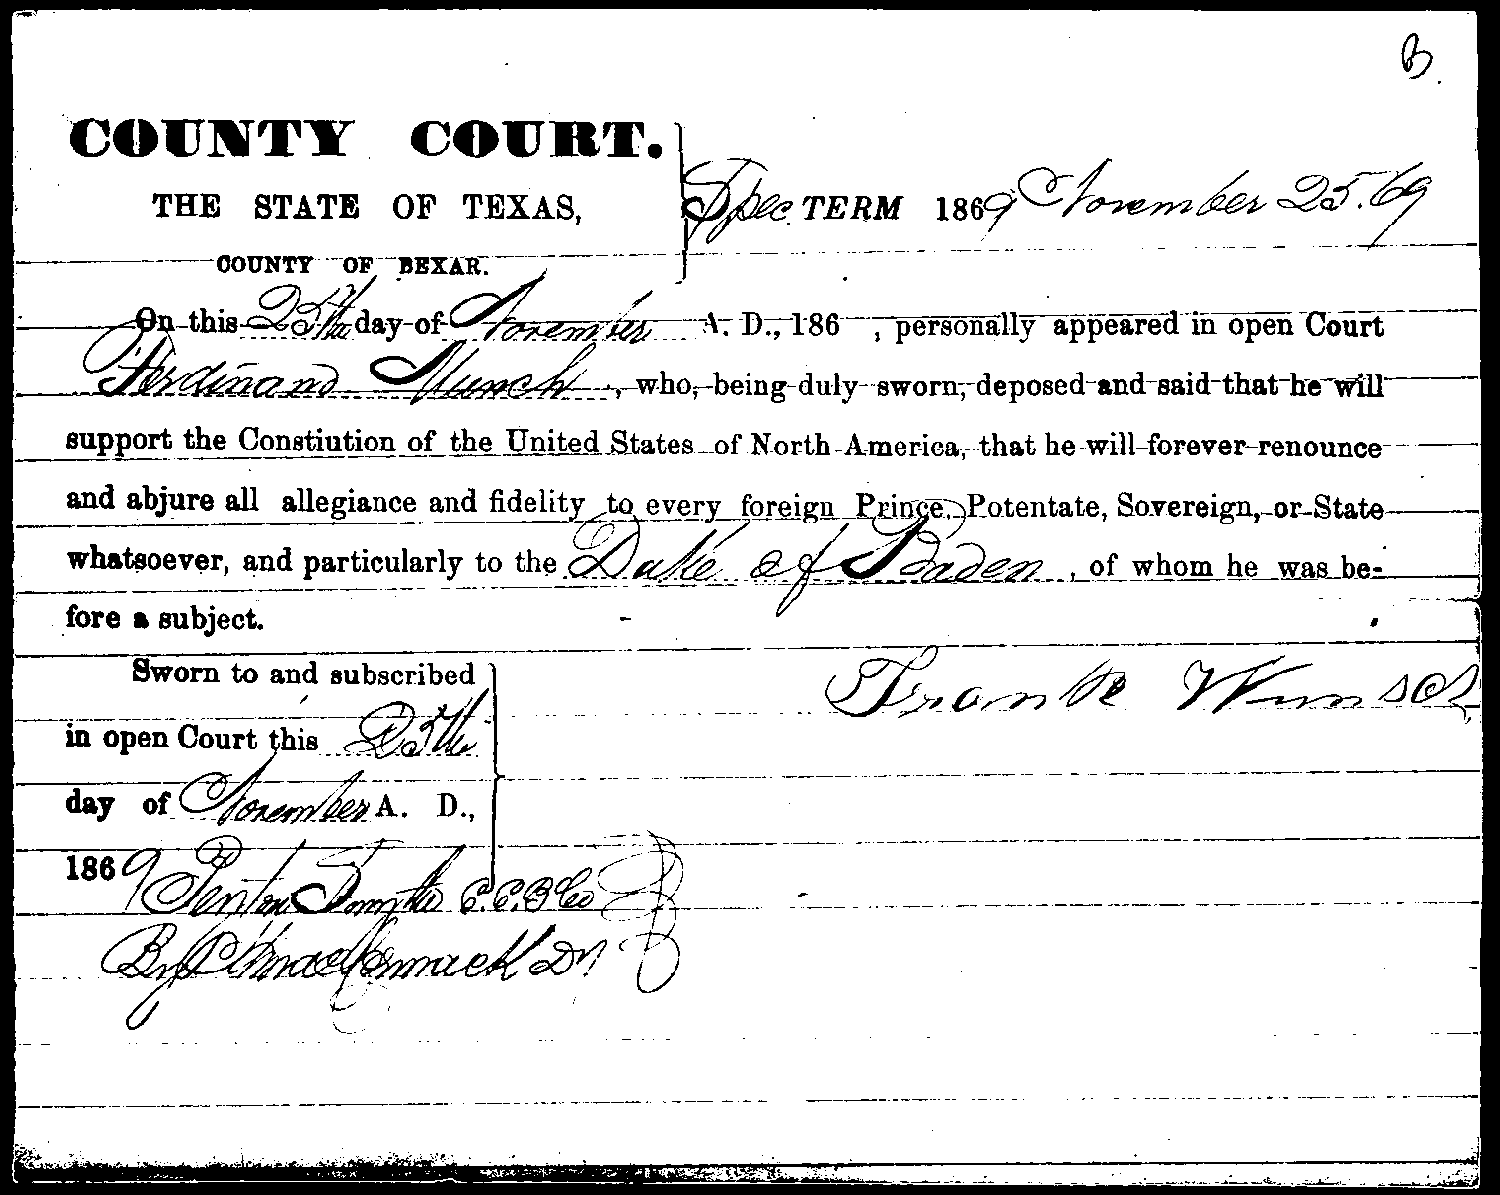 B
COUNTY COURT.
THE STATE OF TEXAS,
COUNTY OF BEXAR.
Spec TERM 1869 November 25. 69
On this 25th day of November A. D., 186 , personally appeared in open Court
Ferdinand Munch , who, being duly sworn, deposed and said that he will
support the Constiution of the United States of North America, that he will forever renounce
and abjure all allegiance and fidelity to every foreign Prince, Potentate, Sovereign, or State
whatsoever, and particularly to the Duke of Baden , of whom he was be-
fore a subject.
Sworn to and subscribed
in open Court this 25th
day of November A. D.,
1869
Frank Wunsch
Smythe C.C.B Co
By